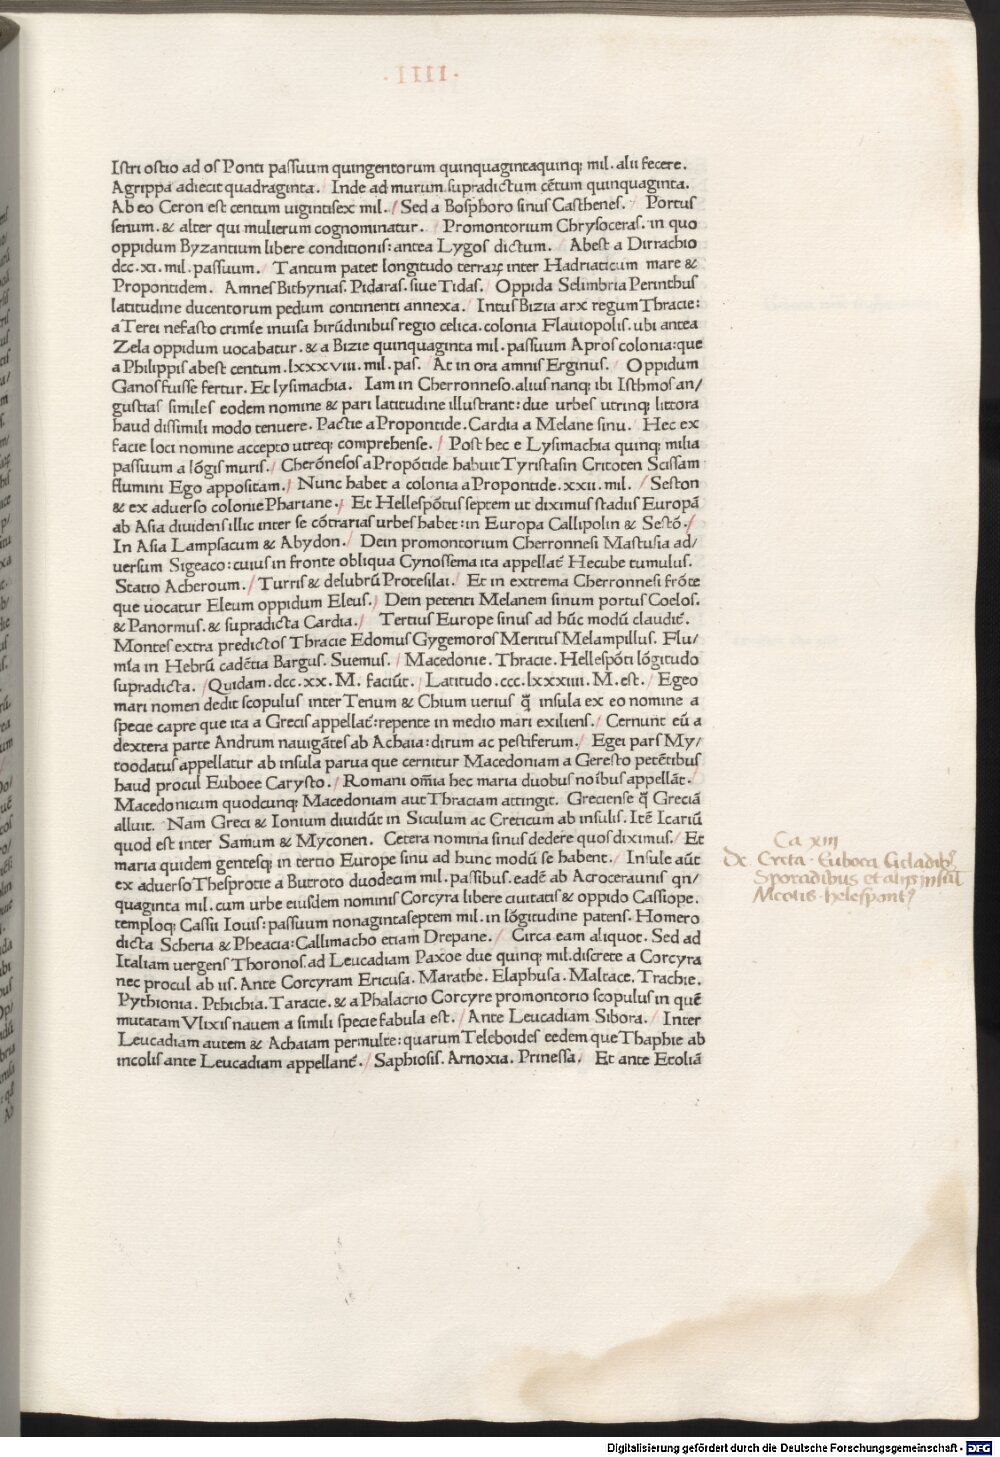 · I I I I ·
Iſtri oſtio ad oſ Ponti paſſuum quingentorum quinquagintaquinq; mil. alii fecere.
Agrippa adiecit quadraginta. / Inde ad murum ſupradictum cẽtum quinquaginta.
Ab eo Ceron eſt centum uigintiſex mil. / Sed a Boſphoro ſinuſ Caſtheneſ. / Portuſ
ſenum. & alter qui mulierum cognominatur. / Promontorium Chryſoceraſ. in quo
oppidum Byzantium libere conditioniſ: antea Lygoſ dictum. / Abeſt a Dirrachio
dcc. xi. mil. paſſuum. / Tantum patet longitudo terraꝝ inter Hadriaticum mare &
Propontidem. Amneſ Bithyniaſ. Pidaraſ. ſiue Tidaſ. / Oppida Selimbria Perinthuſ
latitudine ducentorum pedum continenti annexa. / Intuſ Bizia arx regum Thracie:
a Terei nefaſto crimĩe inuiſa hirũdinibuſ regio celica. colonia Flauiopoliſ. ubi antea
Zela oppidum uocabatur. & a Bizie quinquaginta mil. paſſuum Aproſ colonia: que
a Philippiſ abeſt centum. lxxxviii. mil. paſ. / At in ora amniſ Erginuſ. / Oppidum
Ganoſ fuiſſe fertur. Et lyſimachia. Iam in Cherronneſo. aliuſ nanq; ibi Iſthmoſ an/
guſtiaſ ſimileſ eodem nomine & pari latitudine illuſtrant: due urbeſ utrinq; littora
haud diſſimili modo tenuere. Pactie a Propontide. Cardia a Melane ſinu. / Hec ex
facie loci nomine accepto utreq; comprehenſe. / Poſt hec e Lyſimachia quinq; milia
paſſuum a lõgiſ muriſ. / Cherõneſoſ a Propõtide habuit Tyriſtaſin Critoten Sciſſam
flumini Ego appoſitam. / Nunc habet a colonia a Propontide. xxii. mil. / Seſton
& ex aduerſo colonie Phariane. / Et Helleſpõtuſ ſeptem ut diximuſ ſtadiiſ Europã
ab Aſia diuidenſ illic inter ſe cõtrariaſ urbeſ habet: in Europa Callipolin & Seſtõ. /
In Aſia Lampſacum & Abydon. / Dein promontorium Cherronneſi Maſtuſia ad/
uerſum Sigeaco: cuiuſ in fronte obliqua Cynoſſema ita appellat̃ Hecube tumuluſ.
Statio Acheroum. / Turriſ & delubrũ Proteſilai. / Et in extrema Cherronneſi frõte
que uocatur Eleum oppidum Eleuſ. / Dein petenti Melanem ſinum portuſ Coeloſ.
& Panormuſ. & ſupradicta Cardia. / Tertiuſ Europe ſinuſ ad hũc modũ claudit̃.
Monteſ extra predictoſ Thracie Edomuſ Gygemoroſ Merituſ Melampilluſ. Flu/
mĩa in Hebrũ cadẽtia Barguſ. Suemuſ. / Macedonie. Thracie. Helleſpõti lõgitudo
ſupradicta. / Quidam. dcc. xx. M. faciũt. / Latitudo. ccc. lxxxiiii. M. eſt. / Egeo
mari nomen dedit ſcopuluſ inter Tenum & Chium ueriuſ q̃ inſula ex eo nomine a
ſpecie capre que ita a Greciſ appellat̃: repente in medio mari exilienſ. / Cernunt eũ a
dextera parte Andrum nauigãteſ ab Achaia: dirum ac peſtiferum. / Egei parſ My/
toodatuſ appellatur ab inſula parua que cernitur Macedoniam a Gereſto petẽtibuſ
haud procul Euboee Caryſto. / Romani oñia hec maria duobuſ noĩbuſ appellãt.
Macedonicum quodcunq; Macedoniam aut Thraciam attingit. Grecienſe q̃ Greciã
alluit. Nam Greci & Ionium diuidũt in Siculum ac Creticum ab inſuliſ. Itẽ Icariũ
quod eſt inter Samum & Myconen. Cetera nomina ſinuſ dedere quoſ diximuſ. / Et
maria quidem genteſq; in tertio Europe ſinu ad hunc modũ ſe habent. / Inſule aũt
ex aduerſo Theſprotie a Butroto duodecim mil. paſſibuſ. eadẽ ab Acrocerauniſ qn/
quaginta mil. cum urbe eiuſdem nominiſ Corcyra libere ciuitatiſ & oppido Caſſiope.
temploq; Caſſii Iouiſ: paſſuum nonagintaſeptem mil. in lõgitudine patenſ. Homero
dicta Scheria & Pheacia: Callimacho etiam Drepane. / Circa eam aliquot. Sed ad
Italiam uergenſ Thoronoſ. ad Leucadiam Paxoe due quinq; mil. diſcrete a Corcyra
nec procul ab iiſ. Ante Corcyram Ericuſa. Marathe. Elaphuſa. Maltace. Trachie.
Pythionia. Pthichia. Taracie. & a Phalacrio Corcyre promontorio ſcopuluſ in quẽ
mutatam Vlixiſ nauem a ſimili ſpecie fabula eſt. / Ante Leucadiam Sibora. / Inter
Leucadiam autem & Achaiam permulte: quarum Teleboideſ eedem que Thaphie ab
incoliſ ante Leucadiam appellant̃. / Saphioſiſ. Arnoxia. Prineſſa. Et ante Etoliã
Ca xiii
De Creta Euboea Cicladibꝰ
Sporadibus et aliis insul
Meotis helespontꝰ
Digitalisierung gefördert durch die Deutsche Forschungsgemeinschaft - DFG